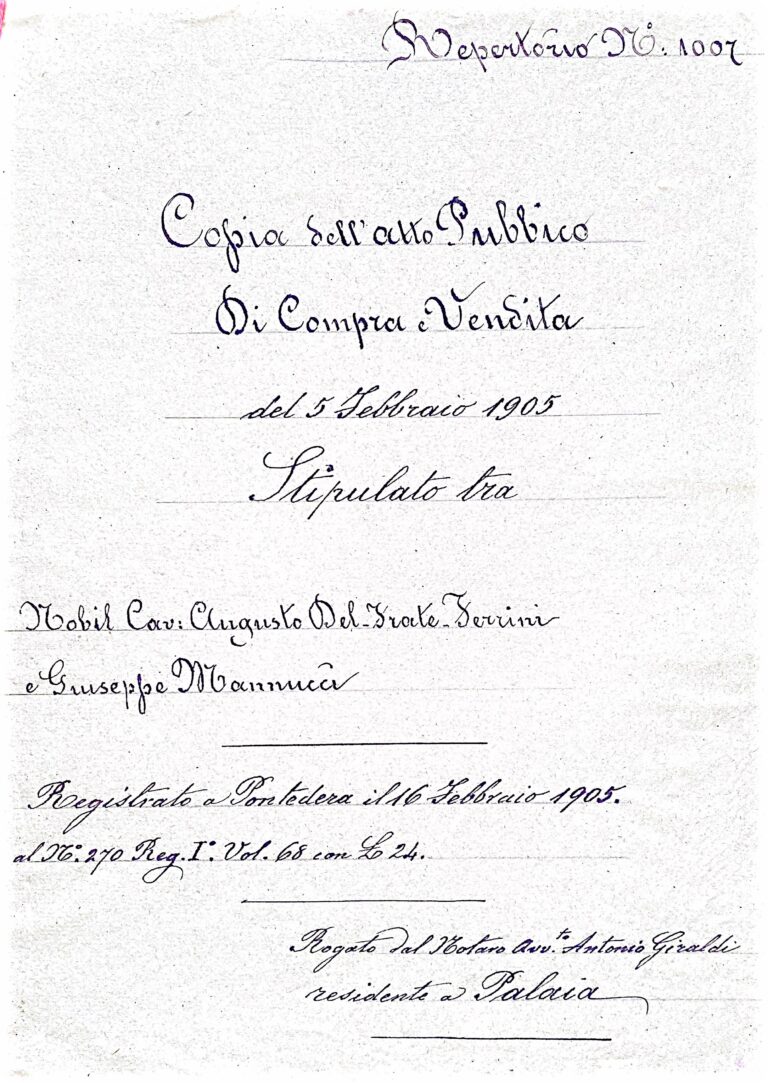 Repertorio N.° 1007
Copia dell'atto Pubblico
Di Compra e Vendita
del 5 Febbraio 1905
Stipulato tra
Nobil Cav: Augusto Del-Frate-Ferrini
e Giuseppe Mannucci
Registrato a Pontedera il 16 Febbraio 1905.
al N.° 270 Reg. I.° Vol. 68 con L 24.
Rogato dal Notaro Avv.to Antonio Giraldi
residente a Palaia